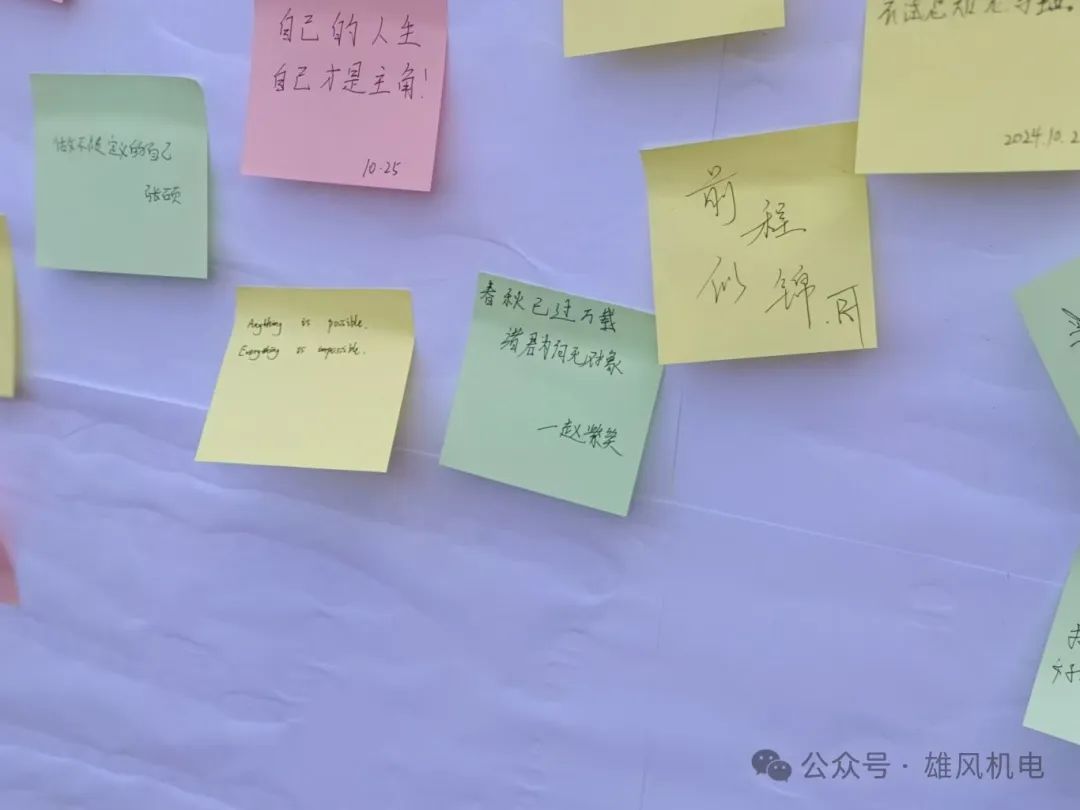 自己的人生
自己才是主角!
10.25
做不被定义的自己
张硕
2024.10.2
前程
似锦
Anything is possible.
Everything is impossible.
春秋已过万载
诸君为何无对象
一赵紫笑
公众号·雄风机电